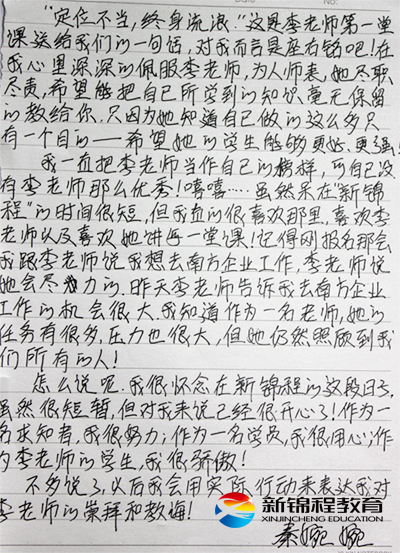 “定位不当,终身流浪。”这是李老师第一堂
课送给我们的一句话,对我而言是座右铭吧!在
我心里深深的佩服李老师,为人师表,她尽职
尽责,希望能把自己所学到的知识毫无保留
的教给你,只因为她知道自己做的这么多只
有一个目的——希望她的学生能够更好、更强!
我一直把李老师当作自己的榜样,可自己没
有李老师那么优秀!嘻嘻……虽然呆在“新锦
程”的时间很短,但我真的很喜欢那里,喜欢李
老师以及喜欢她讲每一堂课!记得刚报名那会
我跟李老师说我想去南方企业工作,李老师说
她会尽力的.昨天李老师告诉我去南方企业
工作的机会很大.我知道作为一名老师,她的
任务有很多,压力也很大,但她仍然照顾到我
们所有的人!
怎么说呢.我很怀念在新锦程的这段日子,
虽然很短暂,但对我来说已经很开心了!作为一
名求知者,我很努力;作为一名学员,我很用心;作
为李老师的学生,我很骄傲!
不多说了,以后我会用实际行动来表达我对
李老师的崇拜和教诲!
秦婉婉
新锦程教育
XINJINCHENG EDUCATION